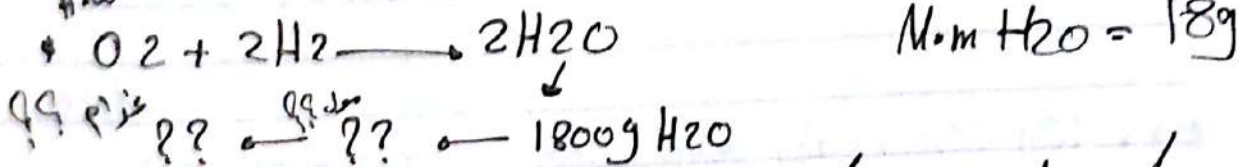 • O2 + 2H2 → 2H2O M.m H2O = 18g
↓
؟؟ غرام ?? ← مول؟؟ ?? ← 1800g H2O